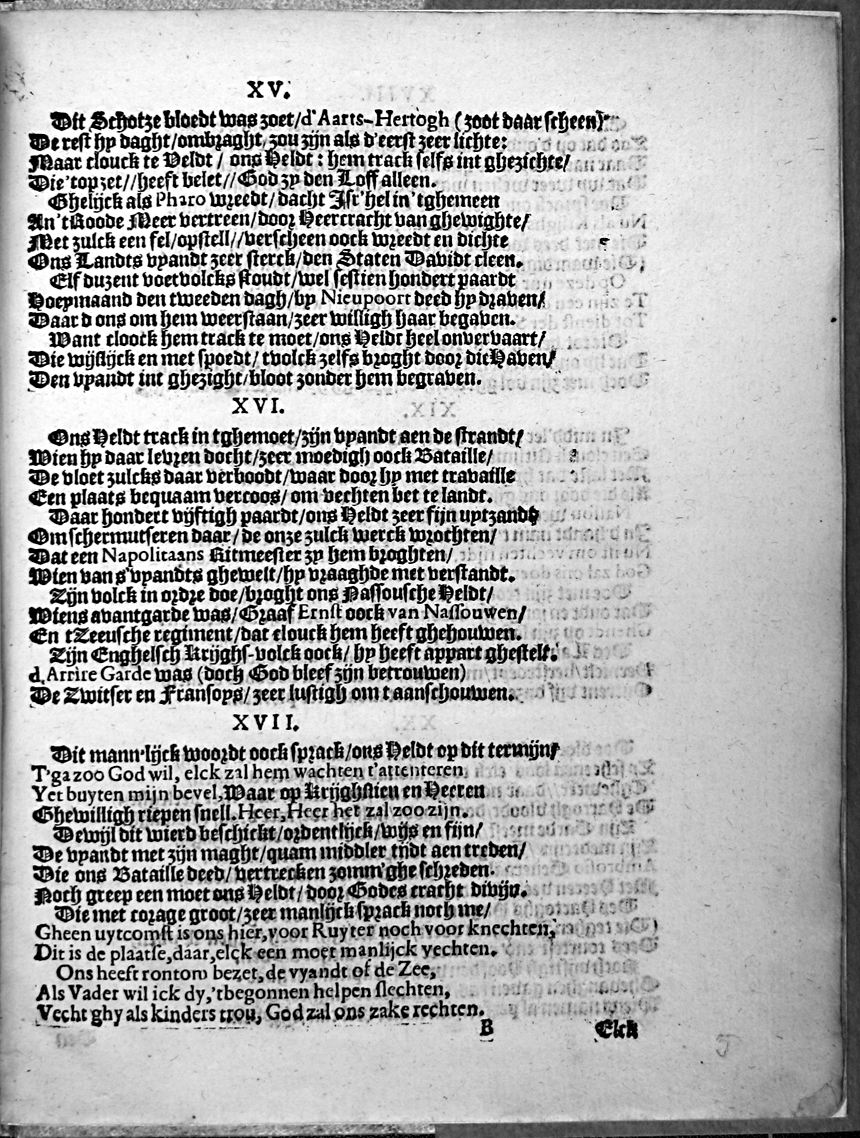 XV.
Dit Schotze bloedt was zoet/d'Aarts-Hertogh (zoot daar scheen)
De rest hy daght/ombraght, zou zijn als d'eerst zeer lichte:
Maar clouck te Veldt / ons Heldt: hem track selfs int ghezichte/
Die 'top zet//heeft belet//God zy den Loff alleen.
Ghelijck als Pharo wreedt/dacht Isr'hel in'tghemeen
An 't Roode Meer vertreen/door Heercracht van ghewighte/
Met zulck een fel/opstell//verscheen oock wreedt en dichte
Ons Landts vyandt zeer sterck/den Staten Davidt cleen.
Elf duzent voetvolcks stoudt/wel sestien hondert paardt
Hoeymaand den tweeden dagh/by Nieupoort deed hy draven/
Daar d ons om hem weerstaan/zeer willigh haar begaven.
Want cloock hem track te moet/ons Heldt heel onvervaart/
Die wijslijck en met spoedt/tvolck zelfs broght door die Haven/
Den vyandt int ghezight/bloot zonder hem begraven.
XVI.
Ons Heldt track in tghemoet/zijn vyandt aen de strandt/
Wien hy daar levren docht/zeer moedigh oock Bataille/
De vloet zulcks daar verboodt/waar door hy met travaille
Een plaats bequaam vercoos/om vechten bet te landt.
Daar hondert vijftigh paardt/ons Heldt zeer fijn uytzandt
Om schermutseren daar/de onze zulck werck wrochten/
Dat een Napolitaans Ritmeester zy hem broghten/
Wien van s'vyandts ghewelt/hy vraaghde met verstandt.
Zijn volck in ordre doe/broght ons Nassousche Heldt/
Wiens avantgarde was/Graaf Ernst oock van Nassouwen/
En tZeeusche regiment/dat clouck hem heeft ghehouwen.
Zijn Enghelsch Krijghs-volck oock/hy heeft appart ghestelt.
d.Arrire Garde was (doch God bleef zijn betrouwen)
De Zwitser en Fransoys/zeer lustigh om t aanschouwen.
XVII.
Dit mann'lijck woordt oock sprack/ons Heldt op dit termijn/
T'ga zoo God wil, elck zal hem wachten t'attenteren
Yet buyten mijn bevel,Waar op Krijghslien en Heeren
Ghewilligh riepen snell.Heer, Heer het zal zoo zijn.
Dewijl dit wierd beschickt/ordentlijck/wijs en fijn/
De vyandt met zijn maght/quam middler tijdt aen treden/
Die ons Bataille deed/vertrecken zomm'ghe schreden.
Noch greep een moet ons Heldt/door Godes cracht divijn.
Die met corage groot/zeer manlijck sprack noch me/
Gheen uytcomst is ons hier,voor Ruyter noch voor knechten,
Dit is de plaatse,daar,elck een moet manlijck vechten.
Ons heeft rontom bezet,de vyandt of de Zee,
Als Vader wil ick dy,'tbegonnen helpen slechten,
Vecht ghy als kinders trou, God zal ons zake rechten.
B Elck